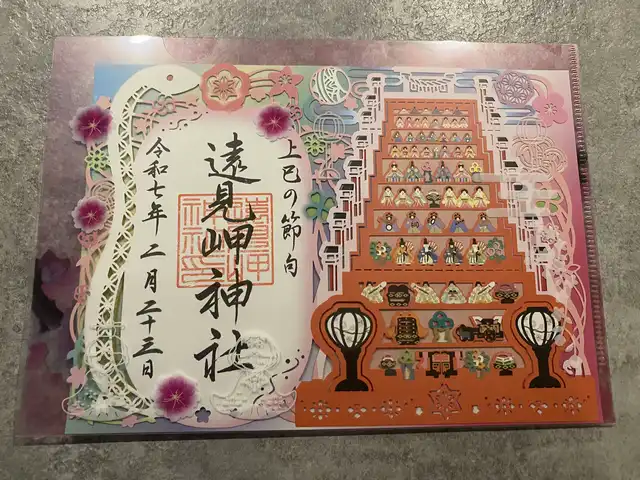 上巳の節句
遠見岬神社
令和七年 二月二十三日